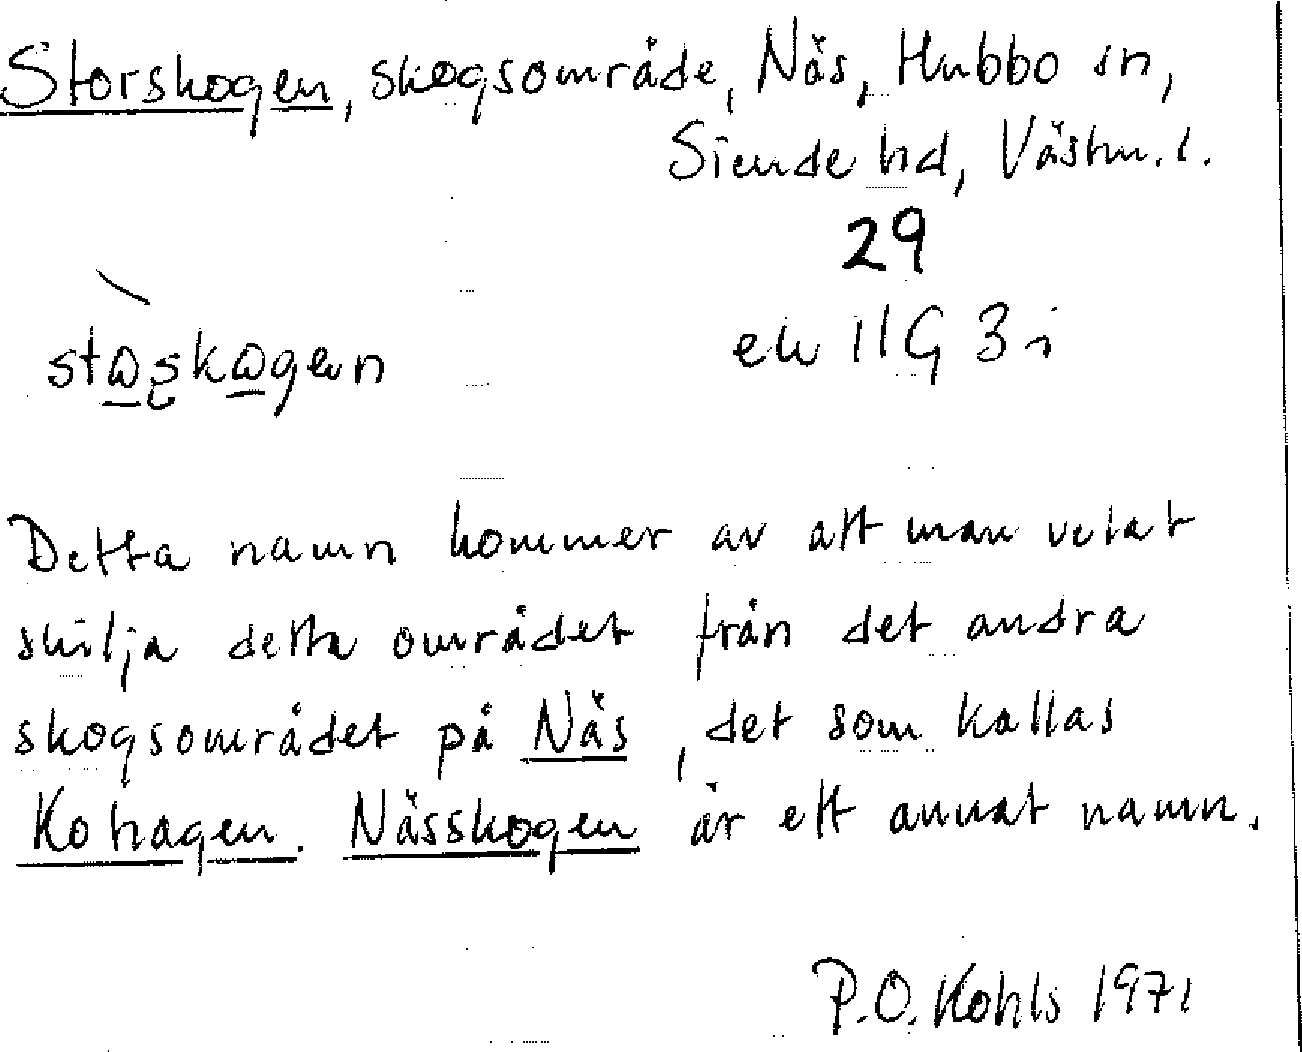 Storskogen, skogsområde, Näs, Hubbo sn,
Siende hd, Västm. l.
29
ek 11G 3i
Detta namn kommer av att man velat
skilja detta området från det andra
skogsområdet på Näs, det som kallas
Kohagen. Nässkogen är ett annat namn.
P.O. Kohls 1971